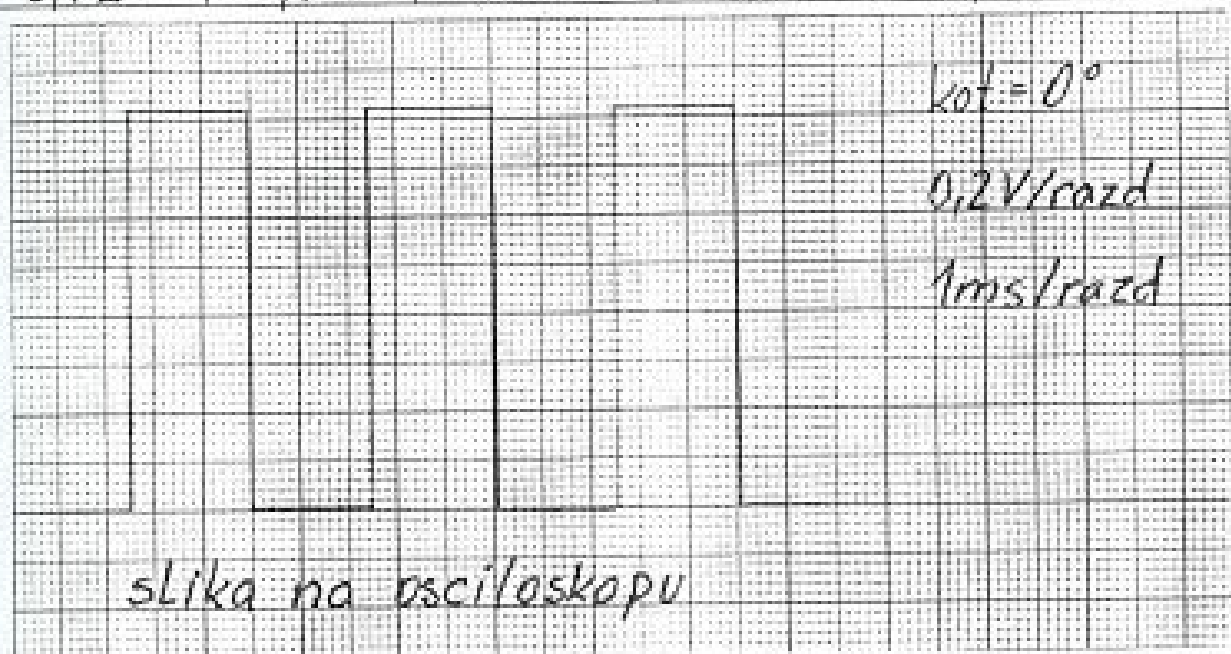 kot = 0°
0,2V/razd
1ms/razd
slika na osciloskopu